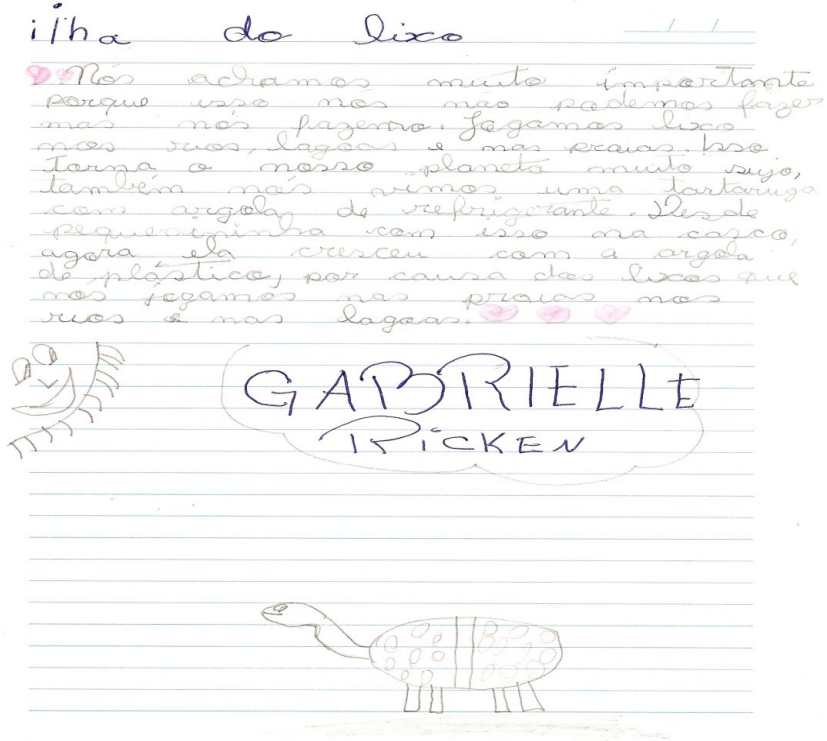 ilha do lixo
Nós achamos muito importante
porque isso nós não podemos fazer
mas nós fazemo. Jogamos lixo
nos rios, lagoas e nas praias. Isso
torna o nosso planeta muito sujo,
também nós vimos uma tartaruga
com argola de refrigerante. Desde
pequenininha com isso no casco,
agora ela cresceu com a argola
de plástico, por causa dos lixos que
nos jogamos nas praias nos
rios e nas lagoas.
GABRIELLE
RICKEN